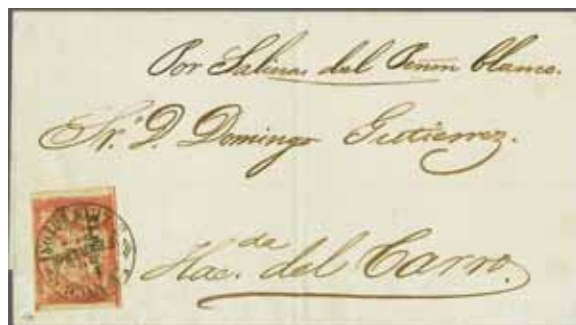 Por Salinas del Peñon blanco.
Sr. D. Domingo Gutierrez.
Hac.da del Carro.